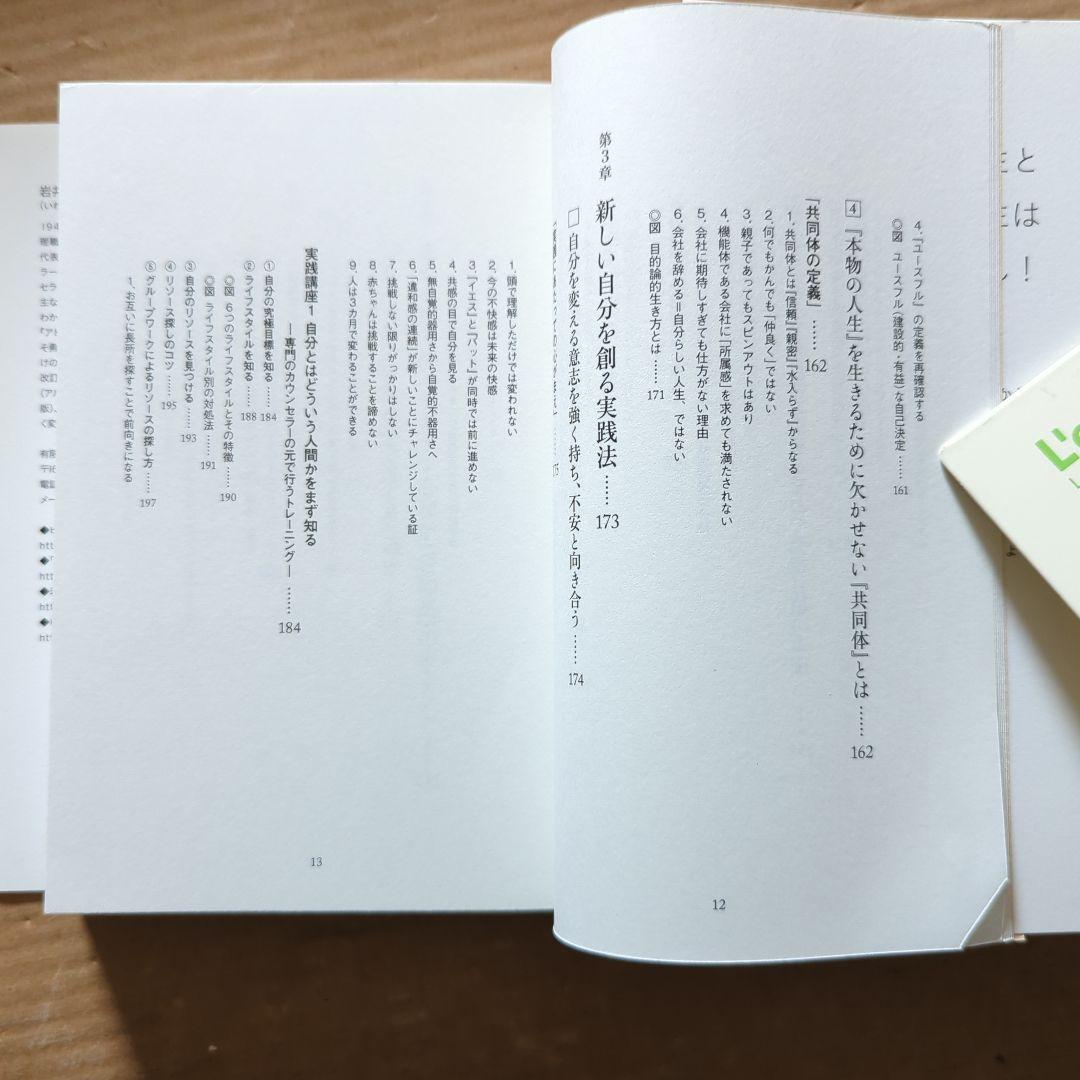 4.『ユースフル』の定義を再確認する
◎図 ユースフル(建設的・有益)な自己決定 …… 161
4 『本物の人生』を生きるために欠かせない『共同体』とは …… 162
『共同体の定義』 …… 162
1. 共同体とは『信頼』『親密』『水入らず』からなる
2. 何でもかんでも「仲良く」ではない
3. 親子であってもスピンアウトはあり
4. 機能体である会社に『所属感』を求めても満たされない
5. 会社に期待しすぎても仕方がない理由
6. 会社を辞める=自分らしい人生、ではない
◎図 目的論的生き方とは …… 171
第3章 新しい自分を創る実践法 …… 173
自分を変える意志を強く持ち、不安と向き合う …… 174
12
1. 頭で理解しただけでは変われない
2. 今の不快感は未来の快感
3.「イエス」と「バット」が同時では前に進めない
4. 共感の目で自分を見る
5. 無自覚的器用さから自覚的不器用さへ
6.「違和感の連続」が新しいことにチャレンジしている証
7. 挑戦しない限りがっかりはしない
8. 赤ちゃんは挑戦することを諦めない
9. 人は3カ月で変わることができる
実践講座1 自分とはどういう人間かをまず知る
―専門のカウンセラーの元で行うトレーニング― …… 184
① 自分の究極目標を知る …… 184
② ライフスタイルを知る …… 188
◎図 6つのライフスタイルとその特徴 …… 190
◎図 ライフスタイル別の対処法 …… 191
③ 自分のリソースを見つける …… 193
④ リソース探しのコツ …… 195
⑤ グループワークによるリソースの探し方 …… 197
1. お互いに長所を探すことで前向きになる
13